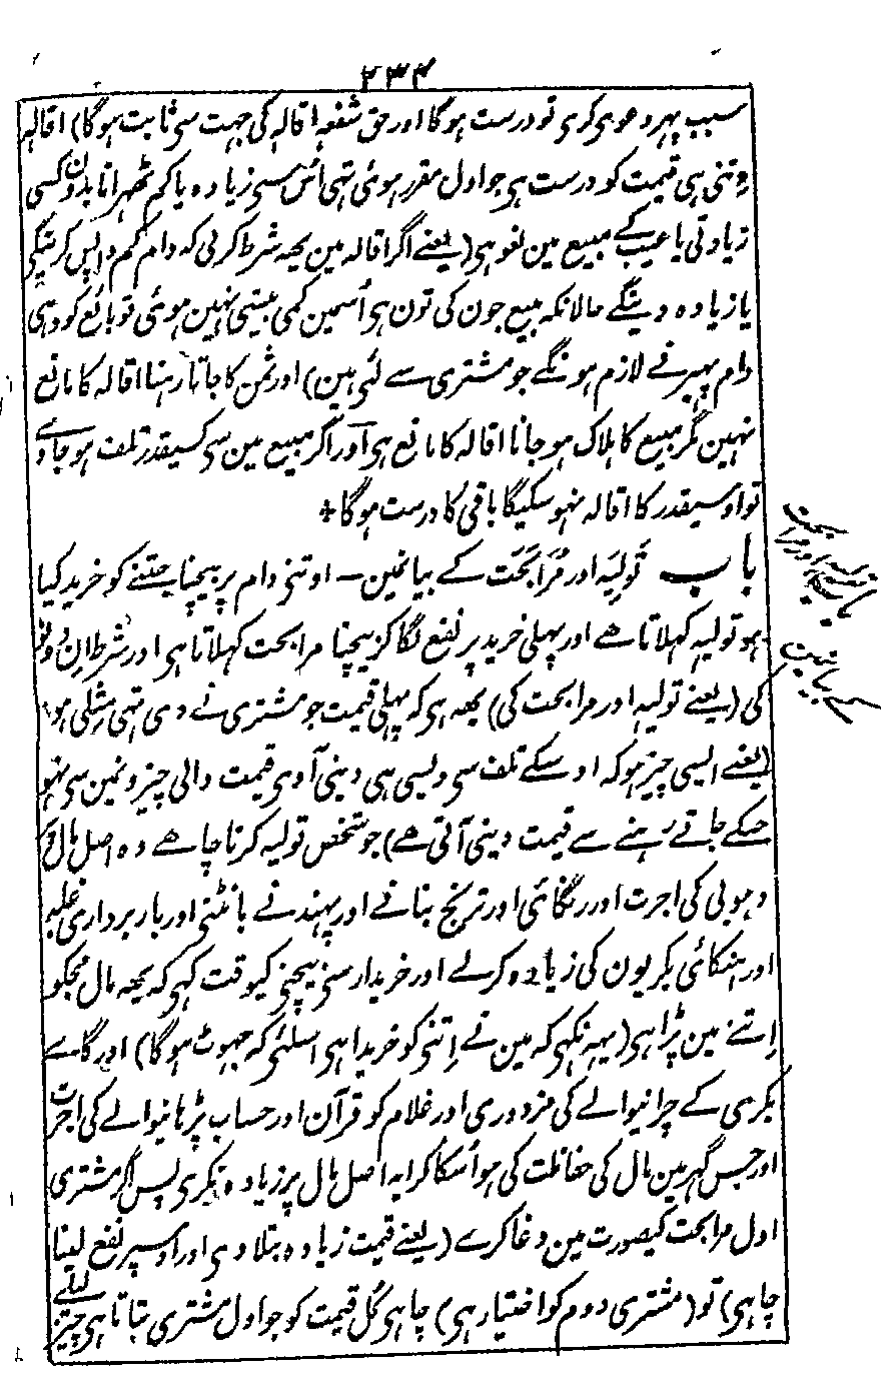 ۲۳۴
سبب پہر دعوی کری تو درست ہوگا اور حق شفعہ اقالہ کی جہت سی ثابت ہوگا) اقالہ
اوتنی ہی قیمت کو درست ہی جو اول مقرر ہوئی تہی اُس سی زیادہ یا کم ٹھہرانا بدون کسی
زیادتی یا عیب کے مبیع مین لغو ہی (یعنے اگر اقالہ مین یحہ شرط کرلی کہ دام کم واپس کرینگی
یا زیادہ دینگے حالانکہ مبیع جون کی تون ہی اُسمین کمی بیشی نہین ہوئی تو بائع کو وہی
دام پہیرنے لازم ہونگے جو مشتری سے لئی ہین) اور ثمن کا جاتا رہنا اقالہ کا مانع
نہین مگر مبیع کا ہلاک ہو جانا اقالہ کا مانع ہی اور اگر مبیع مین سی کسیقدر تلف ہو جاوے
تو اوسیقدر کا اقالہ نہو سکیگا باقی کا درست ہوگا +
باب تَولِیَہ اور مُرَابَحَت کے بیانمین – اوتنی دام پر بیچنا جتنے کو خرید کیا
ہو تولیہ کہلاتا ہے اور پہلی خرید پر نفع لگا کر بیچنا مرابحت کہلاتا ہی اور شرط اِن دونو
کی (یعنے تولیہ اور مرابحت کی) یحہ ہی کہ پہلی قیمت جو مشتری نے دی تہی مِثلی ہو
(یعنے ایسی چیز ہو کہ اوسکے تلف سی ویسی ہی دینی آوی قیمت والی چیزونمین سی نہو
جسکے جاتے رہنے سے قیمت دینی آتی ہے) جو شخص تولیہ کرنا چاہے وہ اصل مال پر
دہوبی کی اجرت اور رنگائی اور ترنج بنانے اور پہندنے بانٹنی اور بار برداری غلہ
اور ہنکائی بکریون کی زیادہ کرلے اور خریدار سی بیچنی کیوقت کہی کہ یحہ مال مجکو
اِتنے مین پڑا ہی (یہہ نکہی کہ مین نے اِتنی کو خریدا ہی اسلئی کہ جہوٹ ہوگا) اور گاے
بکری کے چرانیوالے کی مزدوری اور غلام کو قرآن اور حساب پڑہانیوالے کی اجرت
اور جس گہر مین مال کی حفاظت کی ہو اُسکا کرایہ اصل مال پر زیادہ نکری پس اگر مشتری
اول مرابحت کیصورت مین دغا کرے (یعنے قیمت زیادہ بتلا دی اور اوسپر نفع لینا
چاہی) تو (مشتری دوم کو اختیار ہی) چاہی کُل قیمت کو جو اول مشتری بتاتا ہی چیز لیلے
باب تولیہ اور مرابحت
کے بیانمین